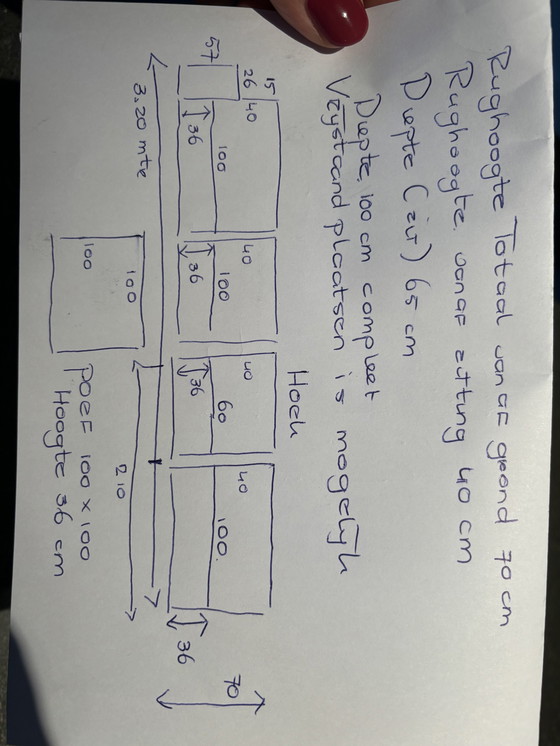 Rughoogte Totaal vanaf grond 70 cm
Rughoogte vanaf zitting 40 cm
Diepte (zit) 65 cm
Diepte 100 cm compleet
Vrystaand plaatsen is mogelyk
Hoek
15
26
57
40
100
36
40
100
36
40
60
36
40
100.
36
70
3.20 mtr
210
100
100
POEF 100 x 100
Hoogte 36 cm